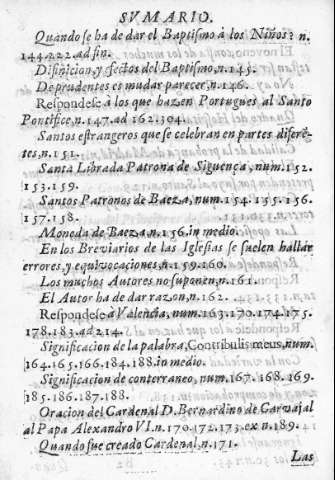 SVMARIO.
Quando se ha de dar el Baptismo à los Niños? n.
144.222. ad fin.
Difinicion, y efectos del Baptismo, n.145.
De prudentes es mudar parecer, n.146.
Respondese à los que hazen Portugues al Santo
Pontifice, n.147. ad 162.304.
Santos estrangeros que se celebran en partes diferẽ-
tes, n.151.
Santa Librada Patrona de Siguença, num.152.
153.159.
Santos Patronos de Baeza, num.154.155.156.
157.158.
Moneda de Baeza, n.156. in medio.
En los Breviarios de las Iglesias se suelen hallar
errores, y equivocaciones, n.159.160.
Los muchos Autores no suponen, n.161.
El Autor ha de dar razon, n.162.
Respondese à Valencia, num.163.170.174.175.
178.183. ad 214.
Significacion de la palabra, Contribulis meus, num.
164.165.166.184.188. in medio.
Significacion de conterraneo, num.167.168.169.
185.186.187.188.
Oracion del Cardenal D. Bernardino de Carvajal
al Papa Alexandro VI. n.170.172.173. ex n.189.
Quando fue creado Cardenal, n.171.
Las